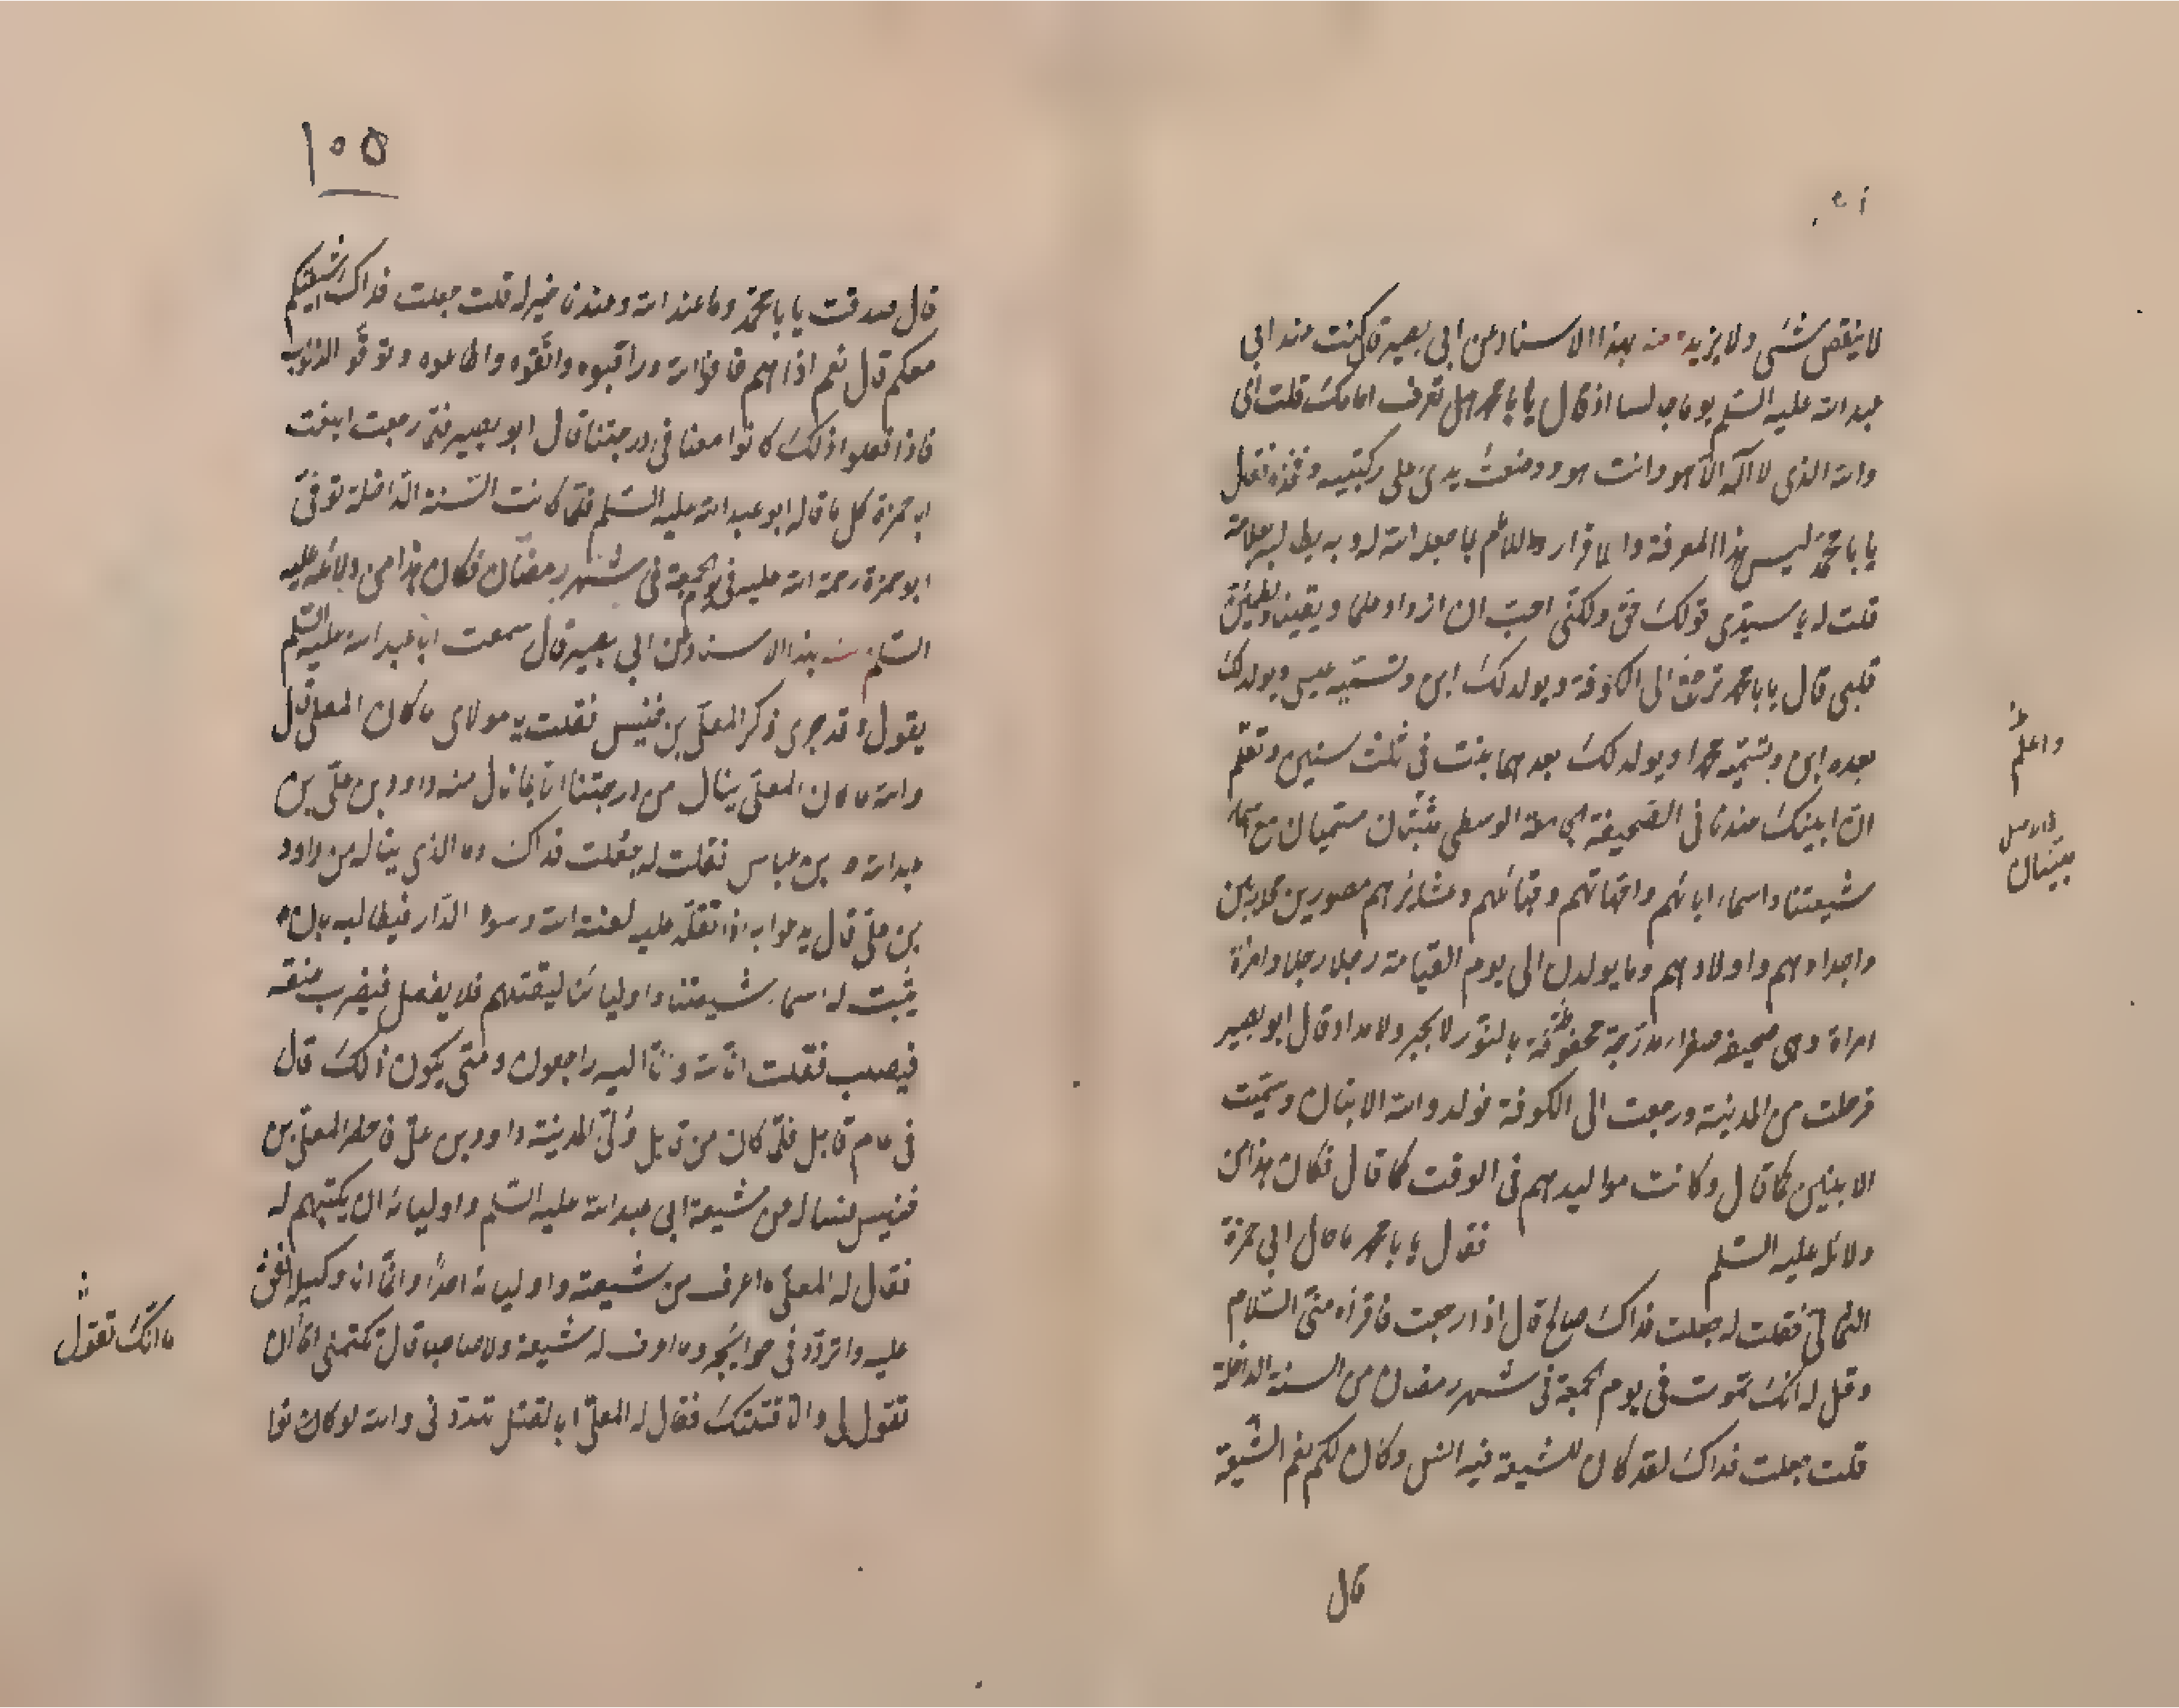 لا ينقص شئ ولا يزيد منه بهذا الاسناد عن ابى بصير قال كنت عند ابى
عبد الله عليه السلم يوما جالسا اذ قال يا با محمد هل تعرف امامك قلت اى
والله الذى لا اله الا هو وانت هو ووضعت يدى على ركبتيه وفخذه فقال
يا با محمد ليس هذا المعرفة والاقرار للامام بما جعله الله له وبه يطالبه بعلامة
قلت له يا سيدى قولك حق ولكنى احب ان ازداد علما ويقينا ويطمئن
قلبى قال يا با محمد ترجع الى الكوفة ويولد لك ابن وتسميه عيسى ويولد لك
بعده ابن وتسميه محمدا ويولد لك بعدهما بنت فى ثلث سنين وتعلم
ان ابنيك عندنا فى الصحيفة الوسطى مثبتان مسميان مع اسماء
شيعتنا واسماء ابائهم وامهاتهم وقبائلهم وعشائرهم مصورين
واجدادهم واولادهم وما يولدن الى يوم القيامة رجلا رجلا وامراة
امراة وهى صحيفة صفراء مدرجة بالنور لا بحبر ولا مداد قال ابو بصير
فرحلت من المدينة ورجعت الى الكوفة فولد والله الابنان وسميت
الابنين كما قال وكانت مواليدهم فى الوقت كما قال فكان هذا من
دلائله عليه السلم فقال يا با محمد ما فعل ابى حمزة
الثمالى فقلت له جعلت فداك صالح قال اذا رجعت فاقرأه منى السلام
وقل له انك تموت فى يوم الجمعة فى شهر رمضان من السنة الداخلة
قلت جعلت فداك لقد كان للشيعة فيه انس وكان لكم نعم الشيعة
قال
واعلم
فى الاصل
مبينان
١٠٥
قال صدقت يا با محمد وما عند الله وعندنا خير له قلت جعلت فداك شيعتكم
معكم قال نعم اذا هم خافوا الله وراقبوه واتقوه واطاعوه وتوقوا الذنوب
فاذا فعلوا ذلك كانوا معنا فى درجتنا قال ابو بصير فلما رجعت ابلغت
ابا حمزة كل ما قاله ابو عبد الله عليه السلم فلما كانت السنة الداخلة توفى
ابو حمزة رحمة الله عليه فى يوم الجمعة فى شهر رمضان فكان هذا من دلائله عليه
السلم منه بهذا الاسناد عن ابى بصير قال سمعت ابا عبد الله عليه السلم
يقول وقد جرى ذكر المعلى بن خنيس فقلت يا مولاى ما كان المعلى قال
والله ما كان المعلى ينال من درجتنا الا بما نال منه داود بن على بن
عبد الله بن عباس فقلت له جعلت فداك وما الذى يناله من داود
بن على قال يدعوا به اذا تقلد عليه لعنة الله وسوء الدار فيطالبه بان
يثبت له اسماء شيعتنا واوليائنا ليقتلهم فلا يفعل فيضرب عنقه
فيصلب فقلت انا لله وانا اليه راجعون ومتى يكون ذلك قال
فى عام قابل فلما كان من قابل ولى المدينة داود بن على فاحضر المعلى بن
خنيس فساله من شيعة ابى عبد الله عليه السلم واوليائه ان يكتبهم له
فقال له المعلى ما اعرف من شيعته واوليائه احدا وانما انا وكيله انفق
عليه واتردد فى حوائجه وما اعرف له شيعة ولا صاحبا قال تكتمنى اما ان
تقول لى والا قتلتك فقال له المعلى ابالقتل تهددنى والله لو كانوا
ما انك تقول